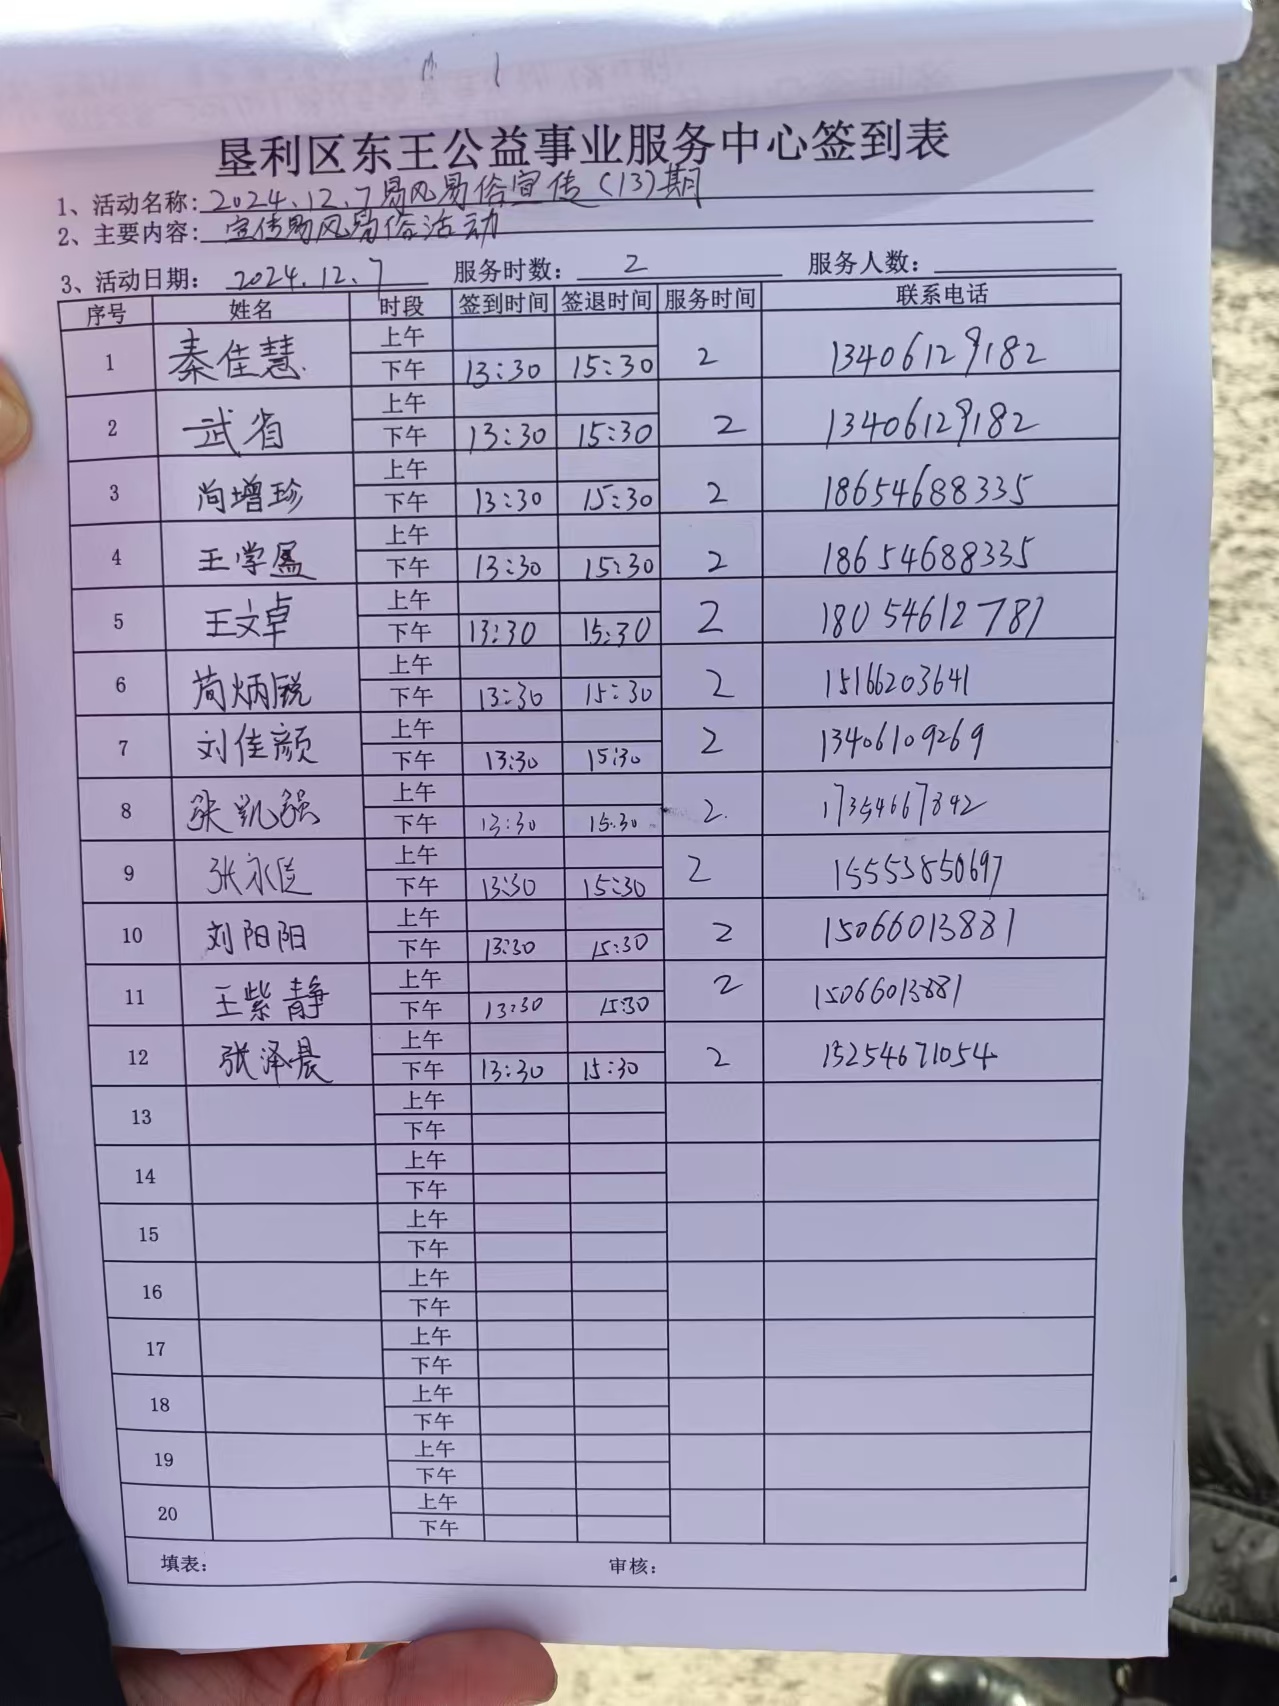 垦利区东王公益事业服务中心签到表
1、活动名称: 2024.12.7易风易俗宣传(13)期
2、主要内容: 宣传易风易俗活动
3、活动日期: 2024.12.7 服务时数: 2 服务人数:
序号 姓名 时段 签到时间 签退时间 服务时间 联系电话
1 秦佳慧 上午
下午 13:30 15:30 2 13406129182
2 武省 上午
下午 13:30 15:30 2 13406129182
3 尚增珍 上午
下午 13:30 15:30 2 18654688335
4 王学 上午
下午 13:30 15:30 2 18654688335
5 王文卓 上午
下午 13:30 15:30 2 18054612781
6 炳锐 上午
下午 13:30 15:30 2 15166203641
7 刘佳颜 上午
下午 13:30 15:30 2 13406109269
8 张凯强 上午
下午 13:30 15:30 2 17354667842
9 张永 上午
下午 13:30 15:30 2 15553850697
10 刘阳阳 上午
下午 13:30 15:30 2 15066013881
11 王紫静 上午
下午 13:30 15:30 2 15066013881
12 张泽晨 上午
下午 13:30 15:30 2 15254671054
13 上午
下午
14 上午
下午
15 上午
下午
16 上午
下午
17 上午
下午
18 上午
下午
19 上午
下午
20 上午
下午
填表: 审核: